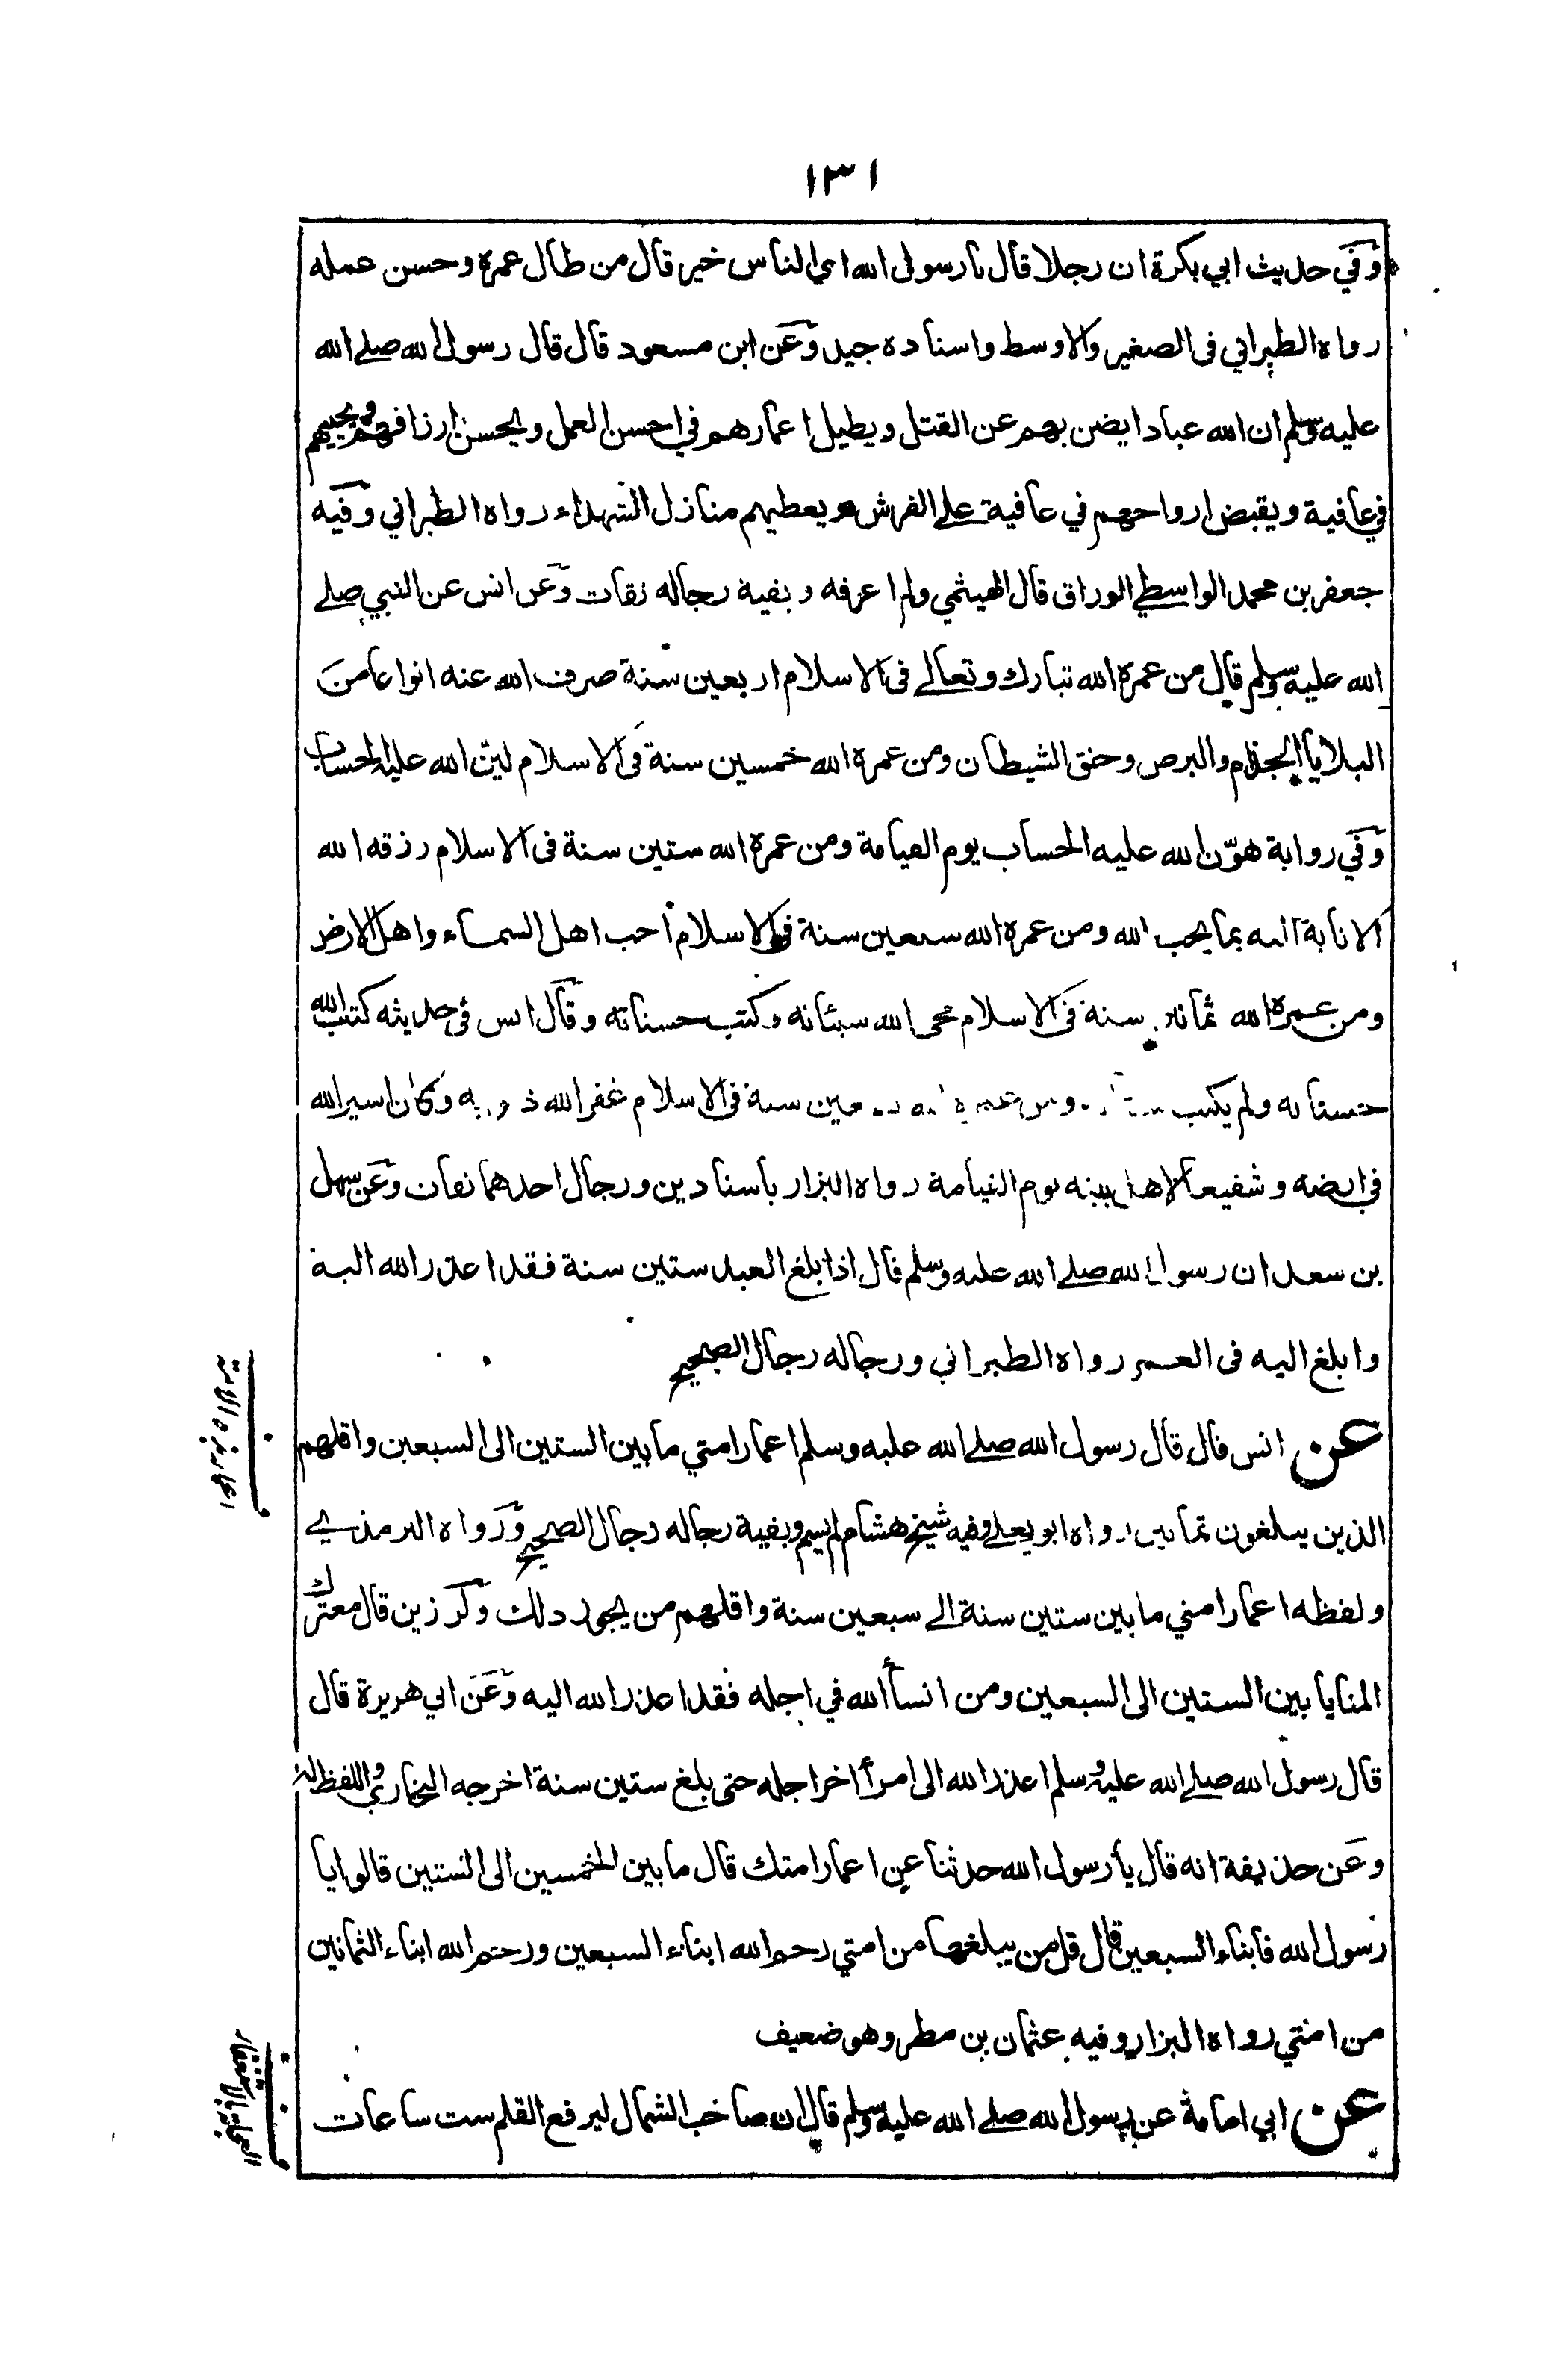 ١٣١
وفي حديث ابي بكرة ان رجلا قال يا رسول الله اي الناس خير قال من طال عمره وحسن عمله
رواه الطبراني فى الصغير والاوسط واسناده جيد وعن ابن مسعود قال قال رسول الله صلے الله
عليه وسلم ان لله عبادا يضن بهم عن القتل ويطيل اعمارهم في احسن العمل ويحسن ارزاقهم ويحييهم
في عافية ويقبض ارواحهم في عافية علے الفرش ويعطيهم منازل الشهداء رواه الطبراني وفيه
جعفر بن محمد الواسطي الوراق قال الهيثمي ولم اعرفه وبقية رجاله ثقات وعن انس عن النبي صلے
الله عليه وسلم قال من عمره الله تبارك وتعالے فى الاسلام اربعين سنة صرف الله عنه انواعا من
البلايا الجذام والبرص وخنق الشيطان ومن عمره الله خمسين سنة في الاسلام لين الله عليه الحساب
وفي رواية هوّن الله عليه الحساب يوم القيامة ومن عمره الله ستين سنة فى الاسلام رزقه الله
الانابة اليه بما يحب الله ومن عمره الله سبعين سنة في الاسلام احب اهل السماء واهل الارض
ومن عمره الله ثمانين سنة في الاسلام محى الله سيئاته وكتب حسناته وقال انس في حديثه كتب الله
حسناته ولم يكتب ومن عمره سنة فى الاسلام غفر الله ذنوبه وكان اسير الله
في ارضه وشفيعا لاهل بيته يوم القيامة رواه البزار باسنادين ورجال احدهما ثقات وعن سهل
بن سعد ان رسول الله صلے الله عليه وسلم قال اذا بلغ العبد ستين سنة فقد اعذر الله اليه
وابلغ اليه فى العمر رواه الطبراني ورجاله رجال الصحيح
اعمار هذه الامة
عن انس قال قال رسول الله صلے الله عليه وسلم اعمار امتي ما بين الستين الى السبعين واقلهم
الذين يبلغون ثمانين رواه ابو يعلے وفيه شيخ هشام لم يسم وبقية رجاله رجال الصحيح ورواه الترمذي
ولفظه اعمار امتي ما بين ستين سنة الے سبعين سنة واقلهم من يجوز ذلك وكرزين قال معترك
المنايا بين الستين الى السبعين ومن انسأ الله في اجله فقد اعذر الله اليه وعن ابي هريرة قال
قال رسول الله صلے الله عليه وسلم اعذر الله الى امرأ اخر اجله حتى بلغ ستين سنة اخرجه البخاري واللفظ له
وعن حذيفة انه قال يا رسول الله حدثنا عن اعمار امتك قال ما بين الخمسين الى الستين قالوا يا
رسول الله فابناء السبعين قال قل من يبلغها من امتي رحم الله ابناء السبعين ورحم الله ابناء الثمانين
من امتي رواه البزار وفيه عثمان بن مطر وهو ضعيف
عن ابي امامة عن رسول الله صلے الله عليه وسلم قال ان صاحب الشمال ليرفع القلم ست ساعات